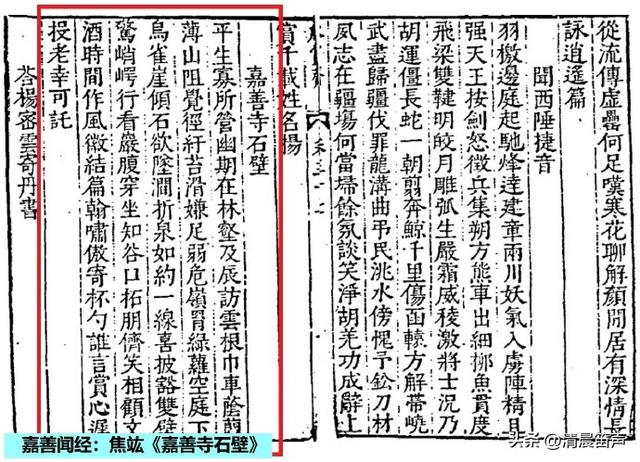 從流傳虛罍何足嘆寒花聊解顏閒居有深情長
詠逍遙篇
聞西陲捷音
羽檄邊庭起馳烽達建章兩川妖氣入虜陣精且
强天王按劍怒徵兵集朔方熊車出細柳魚貫度
飛梁雙鞬明皎月雕弧生嚴霜威稜激將士況乃
胡運僵長蛇一朝翦奔鯨千里傷函轅方解帶嶢
武盡歸疆伐罪龍溝曲弔民洮水傍愧予鈆刀材
夙志在疆場何當埽餘氛談笑淨胡羌功成辭上
賞千載姓名揚
嘉善寺石壁
平生寡所營幽期在林壑及辰訪雲根巾車蔭翦
薄山阻覺徑紆苔滑嫌足弱危嶺罥綠蘿空庭下
鳥雀崖傾石欲墜澗折泉如約一線喜披豁雙壁
驚峭崿行看巖腹穿坐知谷口拓朋儕笑相顧文
酒時間作風微結篇翰嘯傲寄杯勺誰言賞心遲
投老幸可託
荅楊密雲寄丹書
嘉善闻经：焦竑《嘉善寺石壁》
头条 @清晨笛声